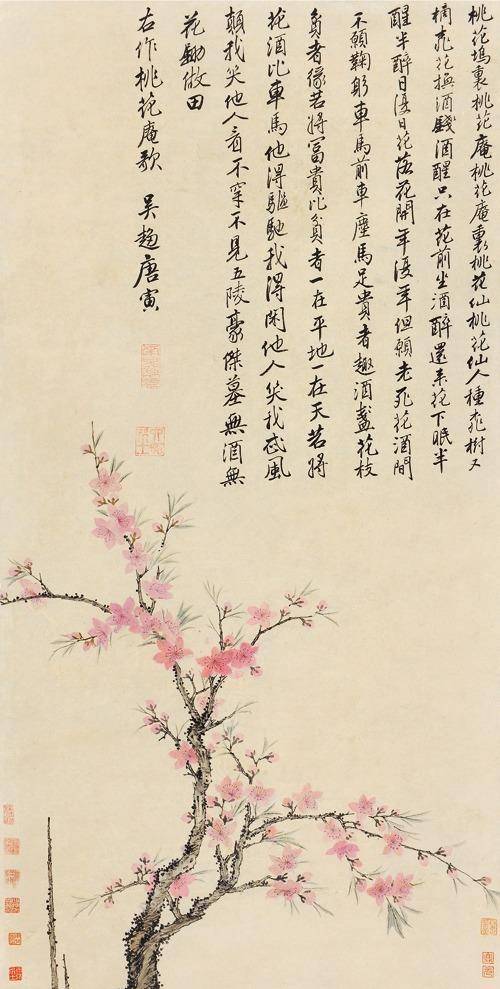 桃花塢裏桃花庵桃花庵裏桃花仙桃花仙人種桃樹又
摘桃花換酒錢酒醒只在花前坐酒醉還來花下眠半
醒半醉日復日花落花開年復年但願老死花酒間
不願鞠躬車馬前車塵馬足貴者趣酒盞花枝
貧者緣若將富貴比貧者一在平地一在天若將
花酒比車馬他得驅馳我得閑他人笑我忒風
顛我笑他人看不穿不見五陵豪傑墓無酒無
花鋤做田
右作桃花庵歌 吳趨唐寅